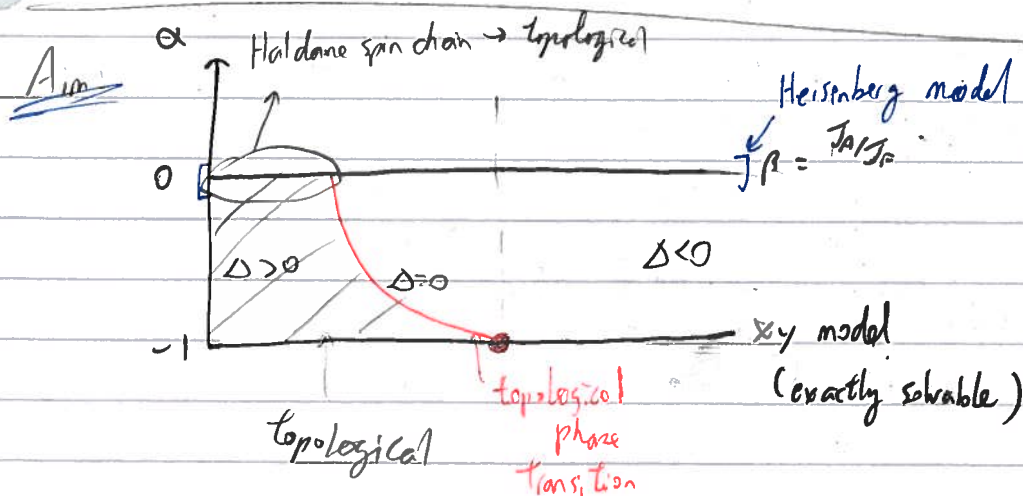 α
Haldane spin chain → topological
Aim
Heisenberg model
0
β = JA/JF
Δ>0
Δ=0
Δ<0
-1
xy model
(exactly solvable)
topological
phase
transition
topological